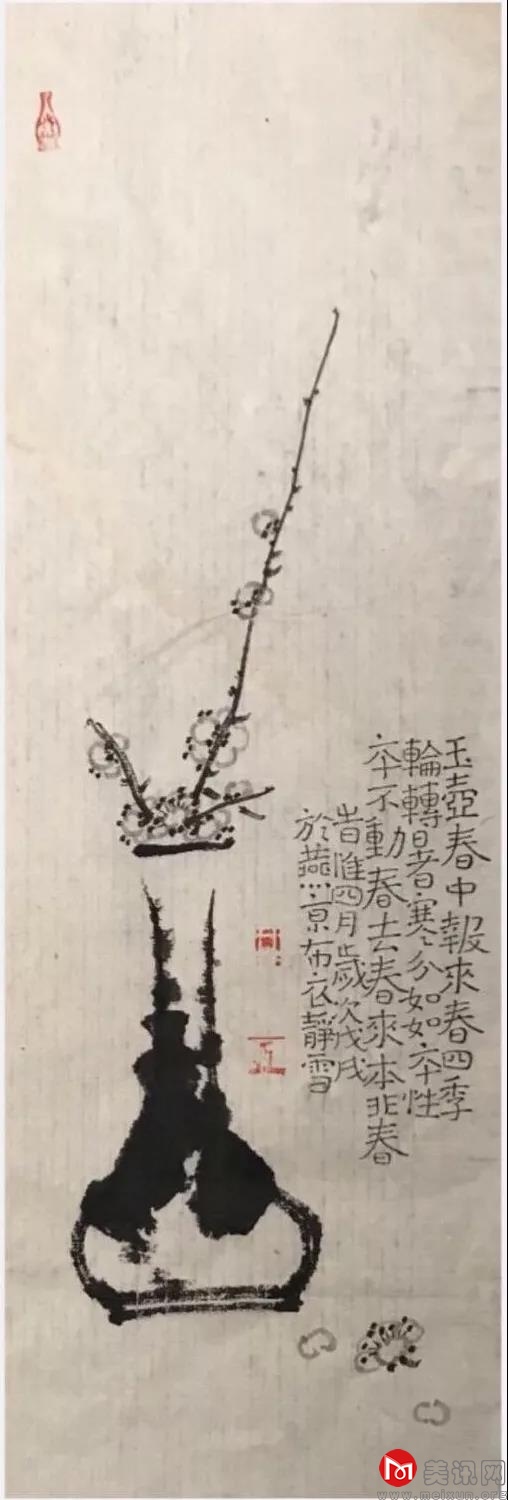 玉壺春中報來春四季
輪轉暑寒分如如夲性
夲不動春去春來本非春
旹惟四月歲次戊戌
於燕京布衣靜雪
美讯网
www.meixun.org